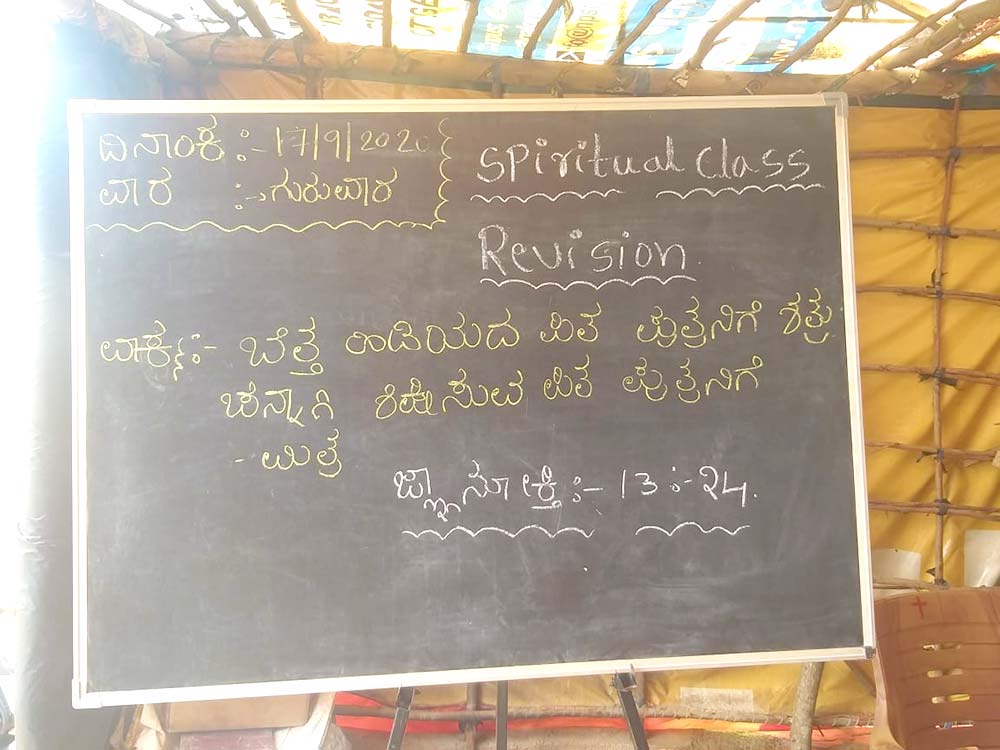 ದಿನಾಂಕ :- 17/9/2020
ವಾರ :-> ಗುರುವಾರ
Spiritual Class
Revision
ವಾಕ್ಯ :- ಬೆತ್ತ ಹಿಡಿಯದ ಪಿತ ಪುತ್ರನಿಗೆ ಶತ್ರು.
ಚೆನ್ನಾಗಿ ಶಿಕ್ಷಿಸುವ ಪಿತ ಪುತ್ರನಿಗೆ
- ಮಿತ್ರ
ಜ್ಞಾನೋಕ್ತಿ :- 13 :- 24.